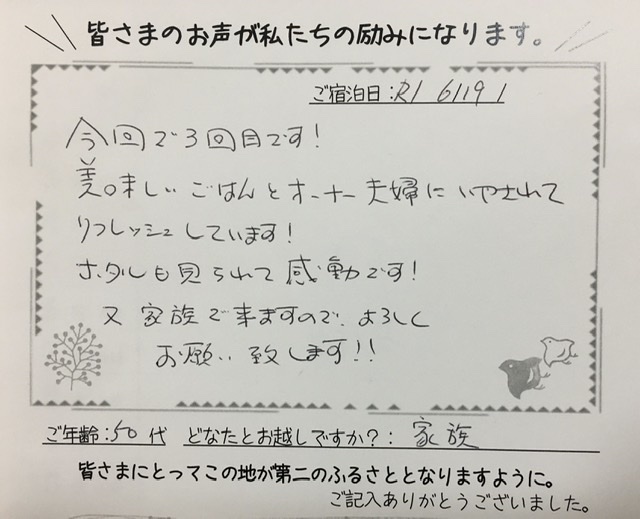 皆さまのお声が私たちの励みになります。
ご宿泊日:R1 6/19
今回で3回目です!
美味しいごはんとオーナー夫婦にいやされて
リフレッシュしています!
ホタルも見られて感動です!
又家族で来ますので、よろしく
お願い致します!!
ご年齢:50代 どなたとお越しですか?:家族
皆さまにとってこの地が第二のふるさととなりますように。
ご記入ありがとうございました。